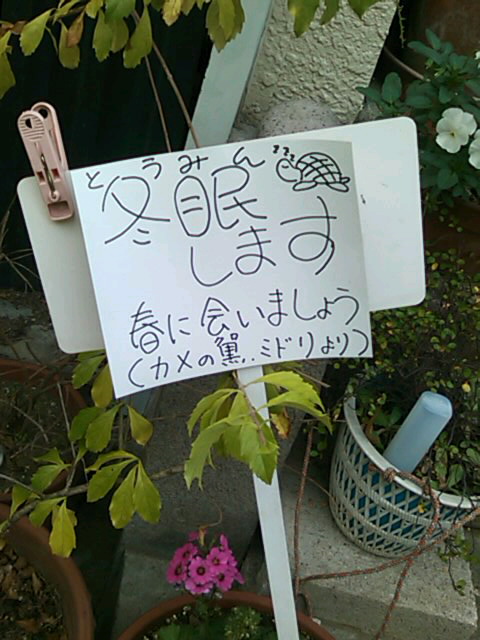 とうみん
冬眠
zzz
します
春に会いましょう
(カメの鴬..ミドリより)